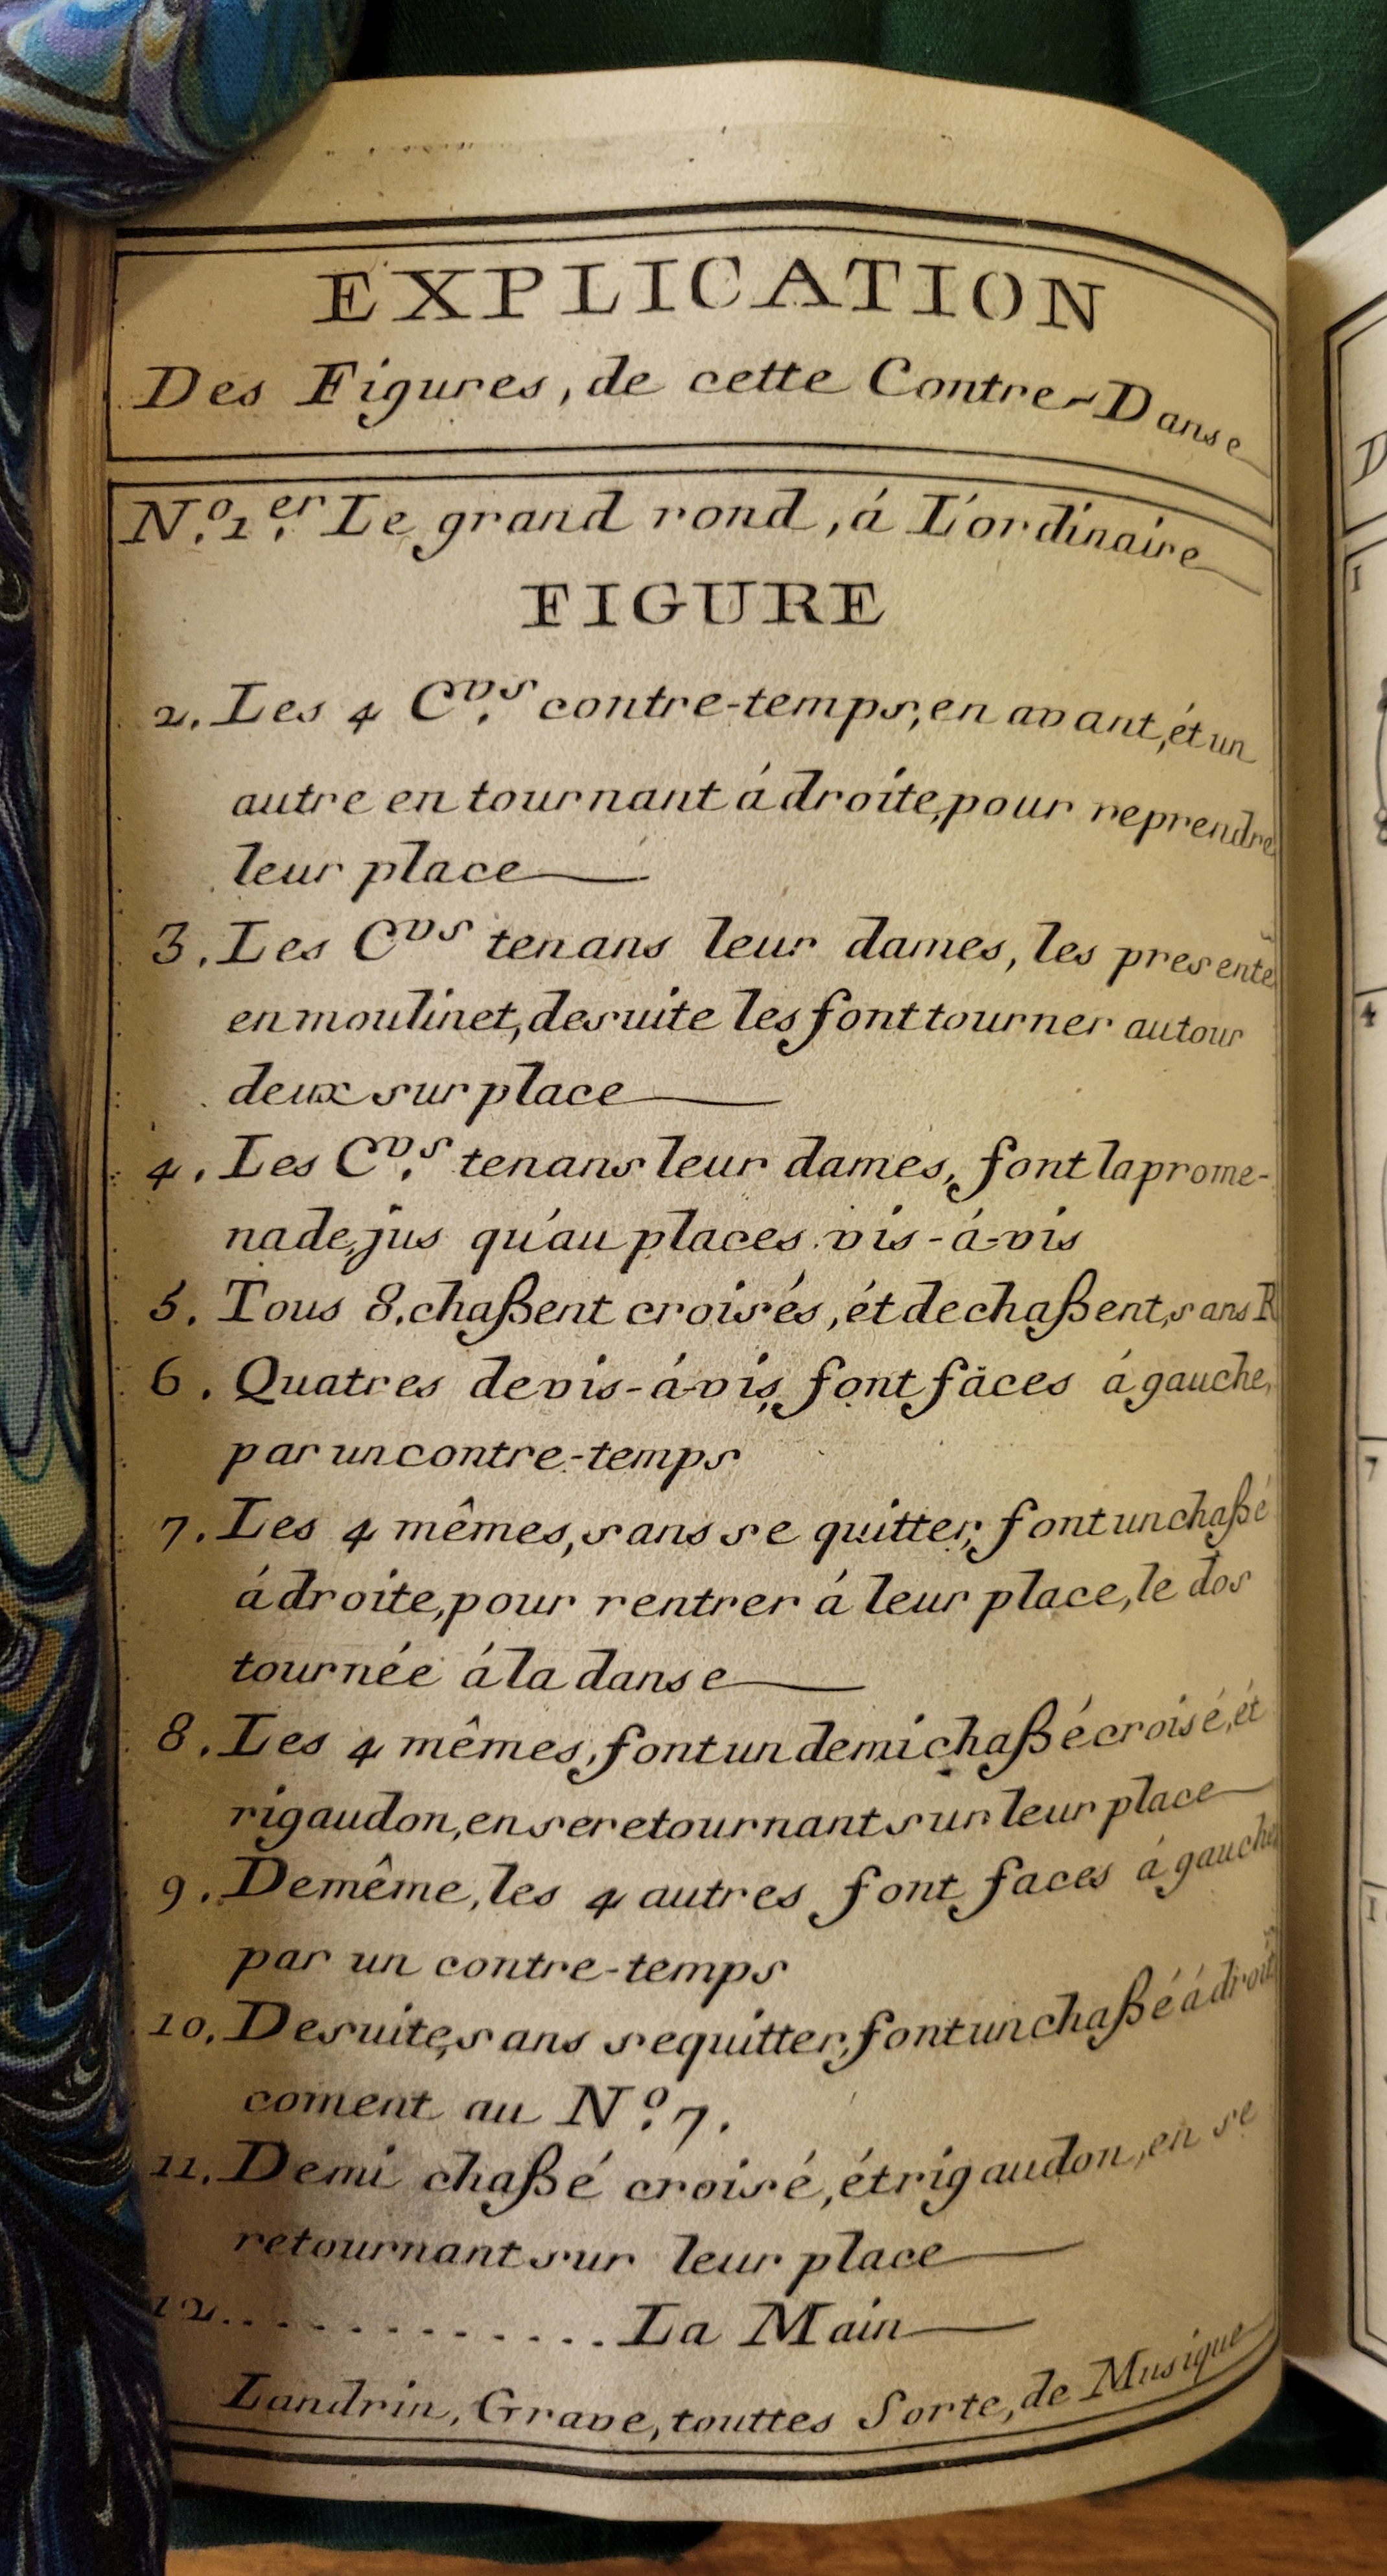 EXPLICATION
Des Figures, de cette Contre-Danse
N.º 1.er Le grand rond, á L'ordinaire
FIGURE
2. Les 4 C.vs contre-temps, en avant, ét un
autre en tournant á droite, pour reprendre
leur place
3. Les Cvs tenans leur dames, les presente
en moulinet, desuite les font tourner autour
deux sur place
4. Les C.vs tenans leur dames, font la prome-
nade, jus qu'au places vis-á-vis
5. Tous 8. chaßent croisés, ét dechaßent, sans R
6. Quatres devis-á-vis, font fâces á gauche,
par un contre-temps
7. Les 4 mêmes, sans se quitter, font un chaßé
á droite, pour rentrer á leur place, le dos
tournée á la danse
8. Les 4 mêmes, font un demi chaßé croisé, ét
rigaudon, en se retournant sur leur place
9. Demême, les 4 autres font faces á gauche
par un contre-temps
10. Desuite, sans se quitter, font un chaßé á droite
coment au N.º 7.
11. Demi chaßé croisé, ét rigaudon, en se
retournant sur leur place
12. . . . . . . . . . . . . La Main
Landrin, Grave, touttes Sorte, de Musique
1
4
7
1
D